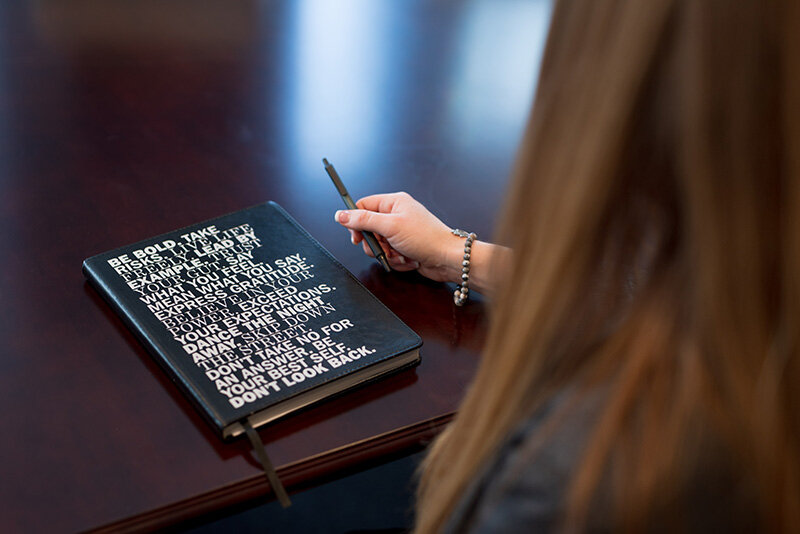 BE BOLD. TAKE
RISKS. LIVE LIFE
FREELY. LEAD BY
EXAMPLE.
SAY
WHAT YOU FEEL.
MEAN WHAT YOU SAY.
EXPRESS GRATITUDE.
YOUR
EXCEED
YOUR EXPECTATIONS.
DANCE THE NIGHT
AWAY. SKIP DOWN
THE STREET.
DON'T TAKE NO FOR
AN ANSWER. BE
YOUR BEST SELF.
DON'T LOOK BACK.